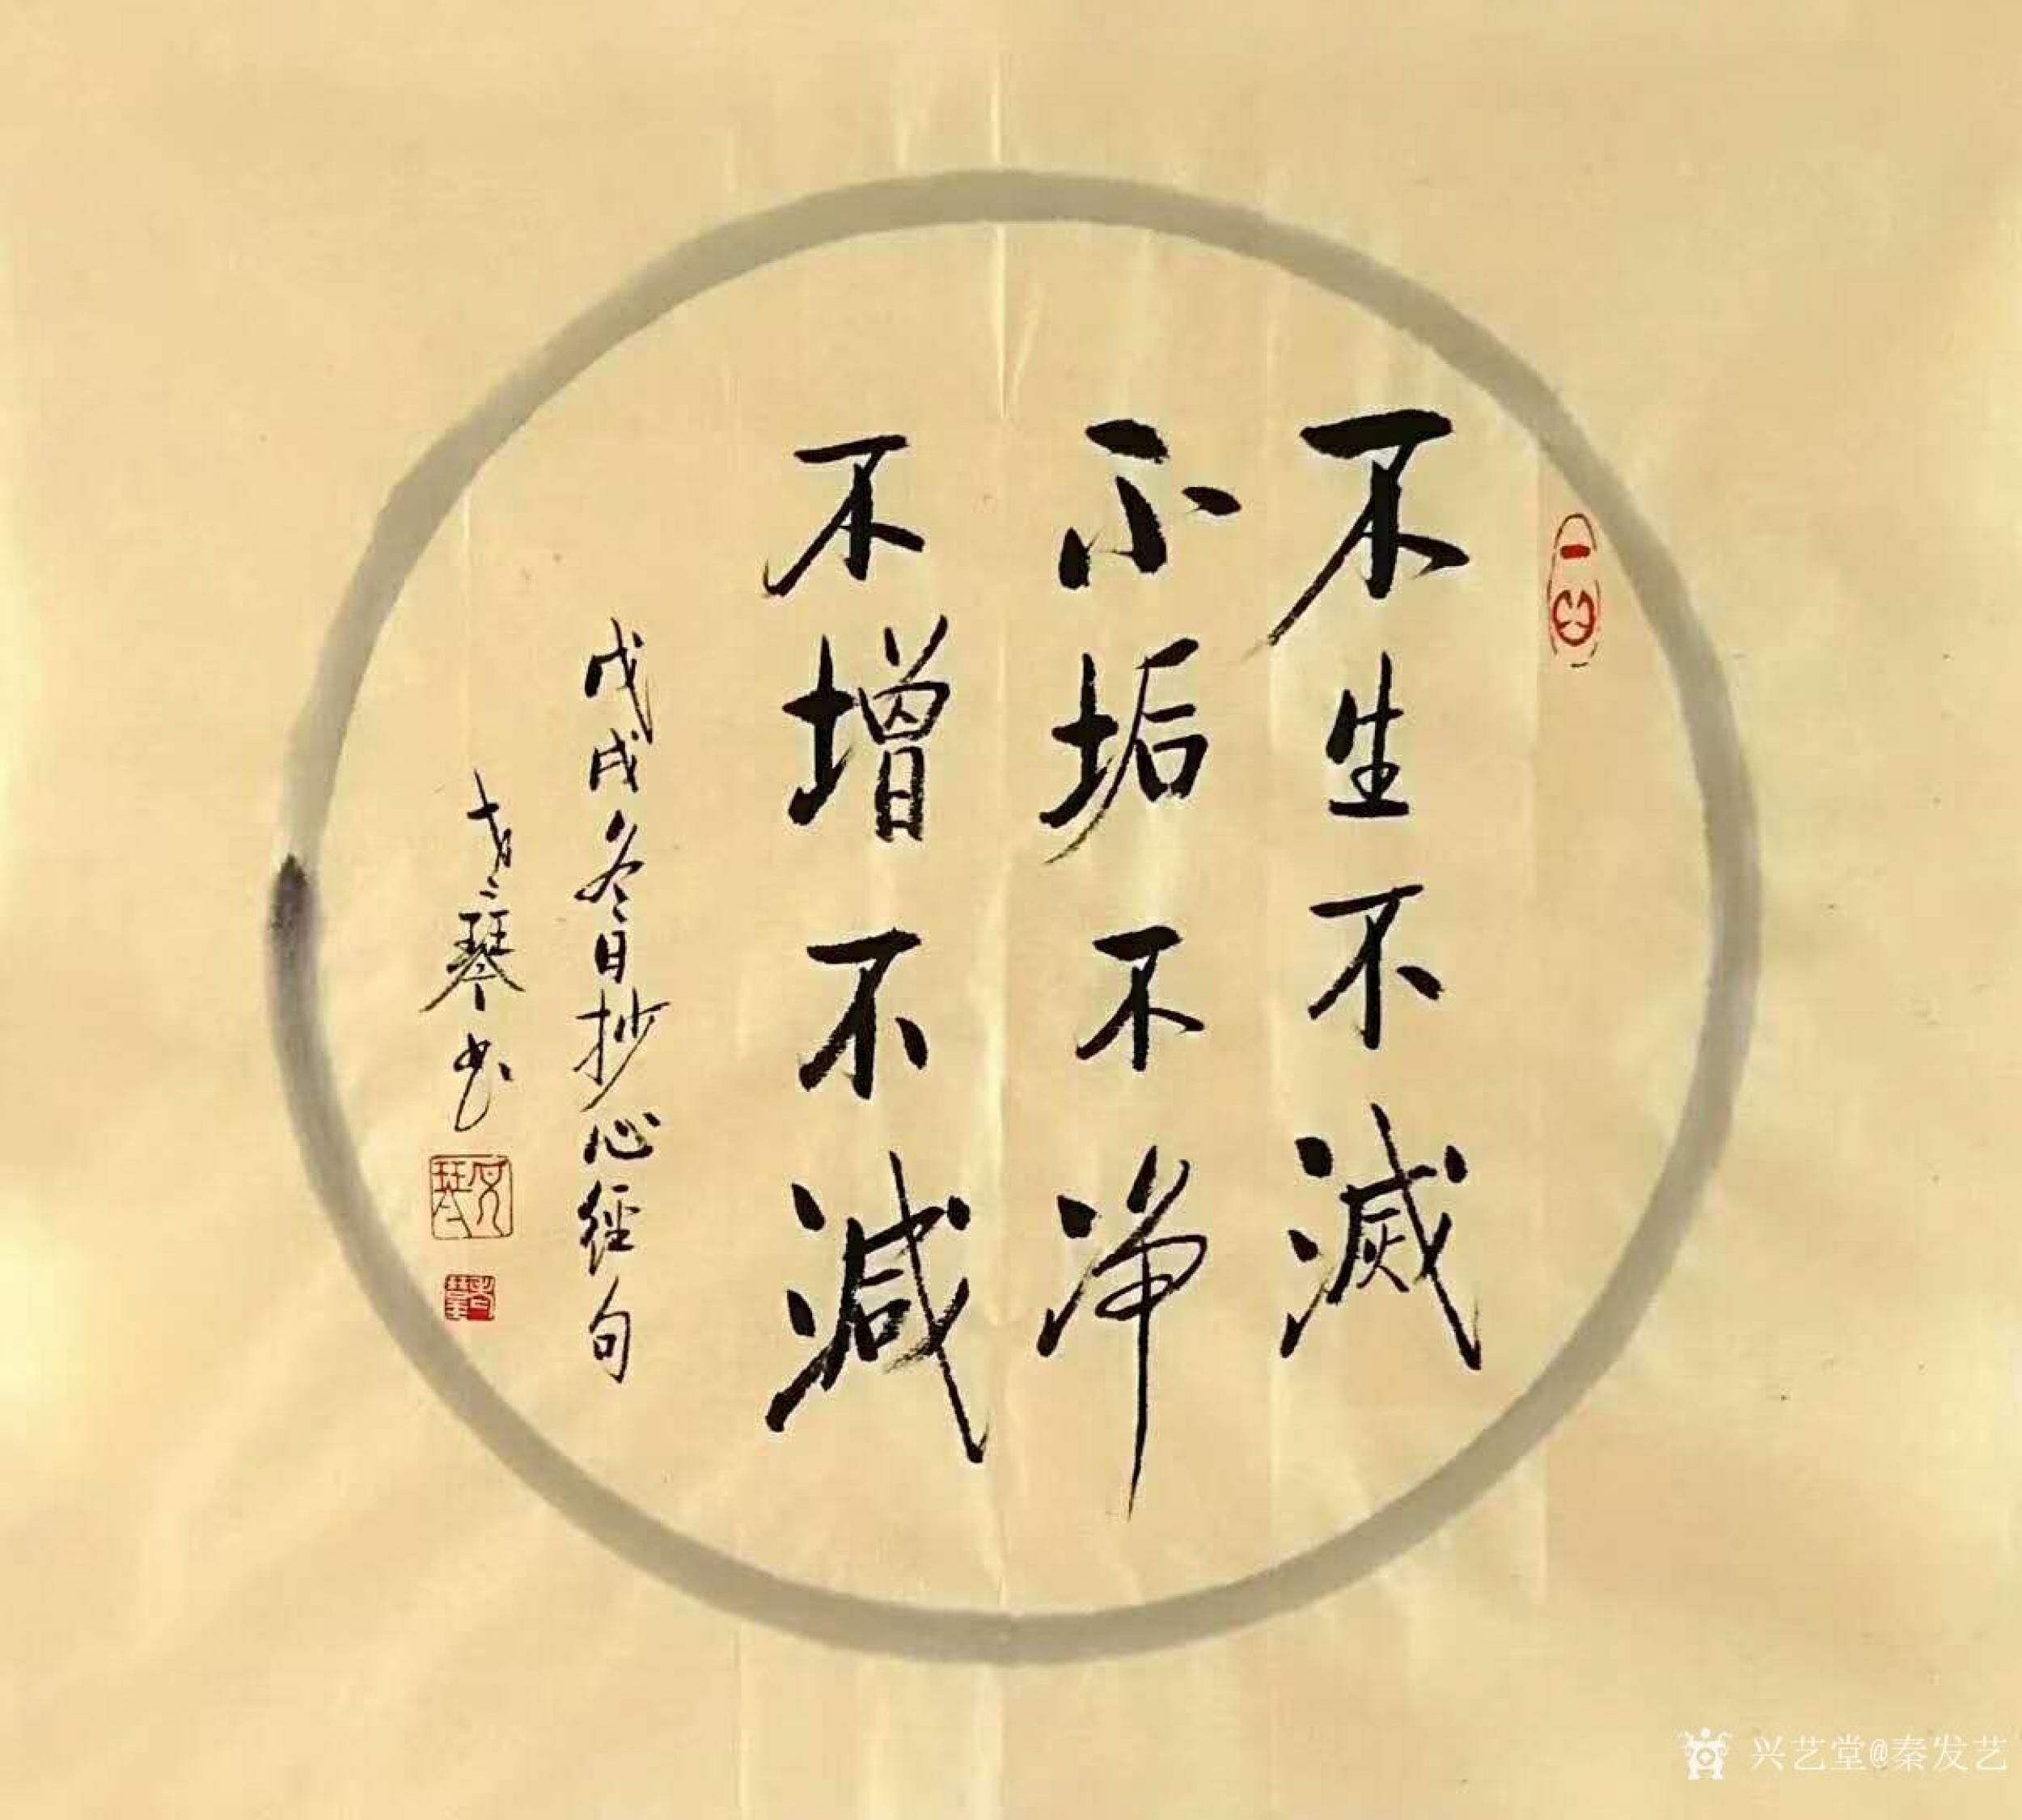 不生不滅
不垢不净
不增不減
戊戌冬日抄心經句
琴书
兴艺堂@秦发艺